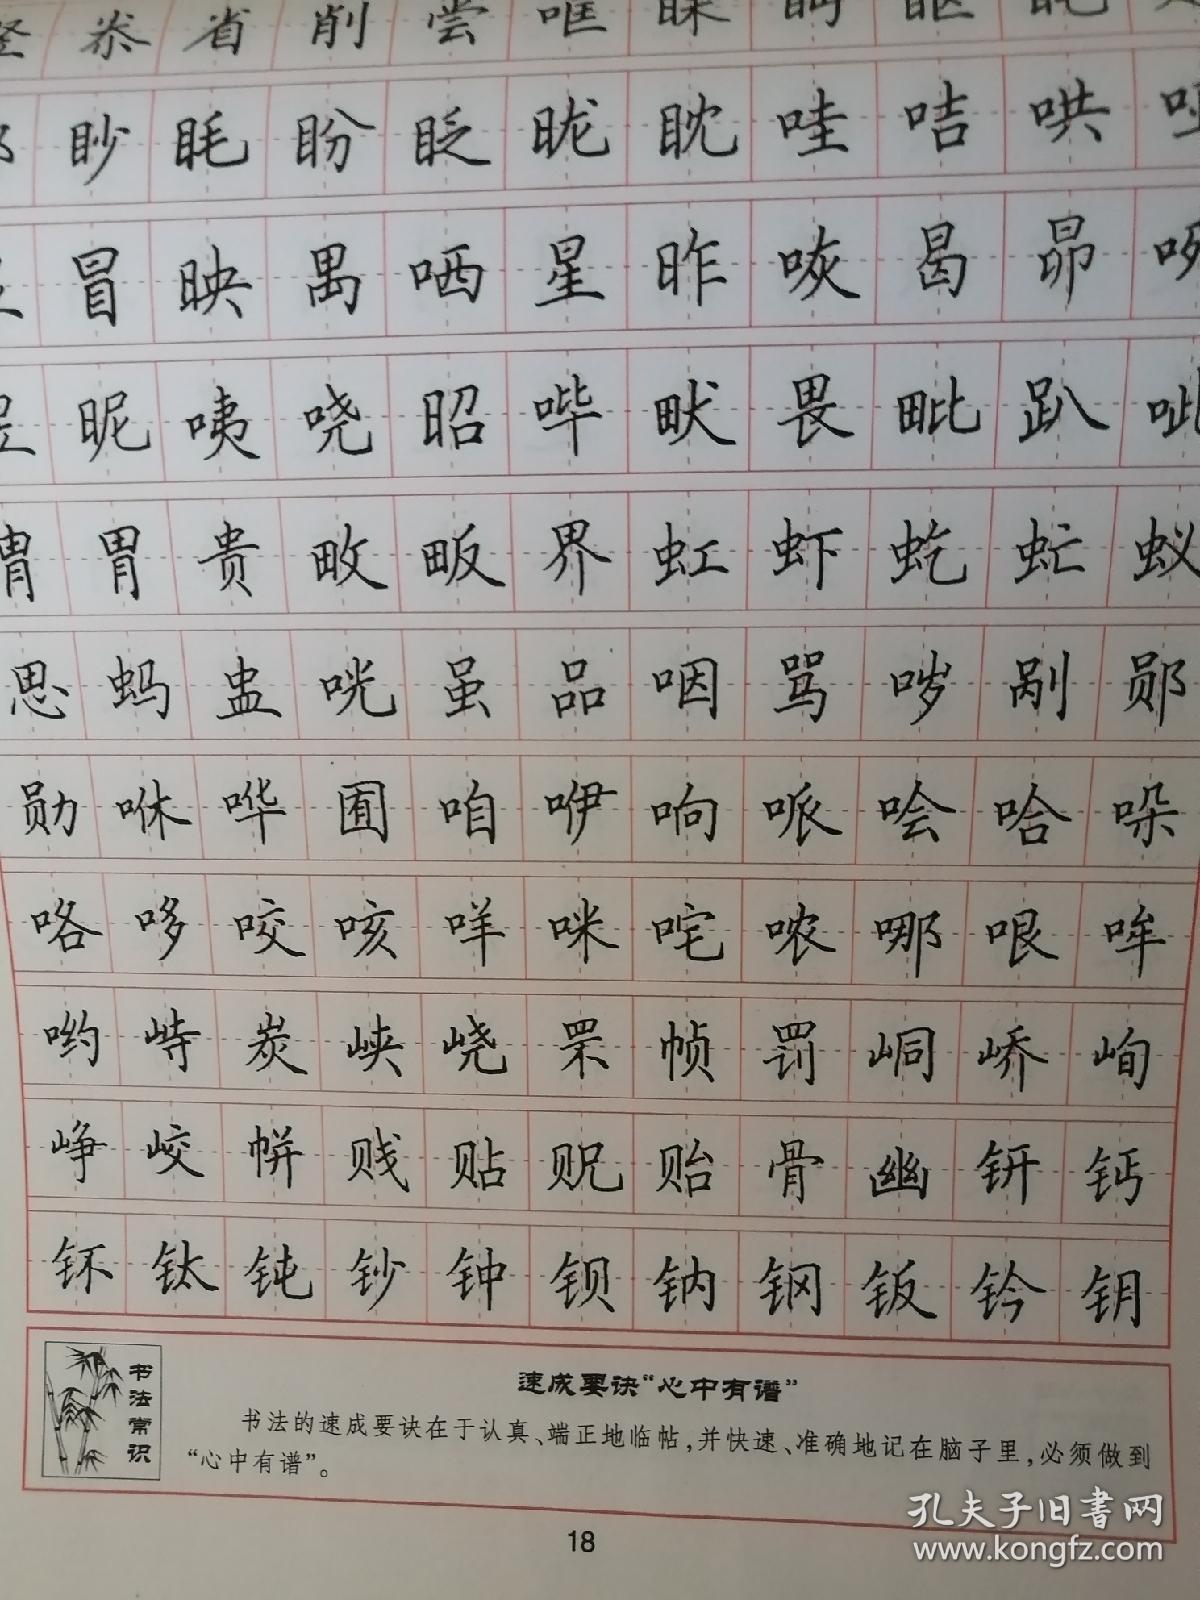 省削尝哐睐眄
眇眊盼眨昽眈哇咭哄
冒映禺哂星昨咴曷昴
昵咦哓昭哔畎畏毗趴
胃贵畋畈界虹虾虼虻蚁
思蚂盅咣虽品咽骂哕剐郧
勋咻哗囿咱咿响哌哙哈哚
咯哆咬咳咩咪咤哝哪哏哞
哟峙炭峡峣罘帧罚峒峤峋
峥峧帡贱贴贶贻骨幽钘钙
钚钛钝钞钟钡钠钢钣钤钥
书法常识
速成要诀“心中有谱”
书法的速成要诀在于认真、端正地临帖，并快速、准确地记在脑子里，必须做到
“心中有谱”。
18
孔夫子旧书网
www.kongfz.com